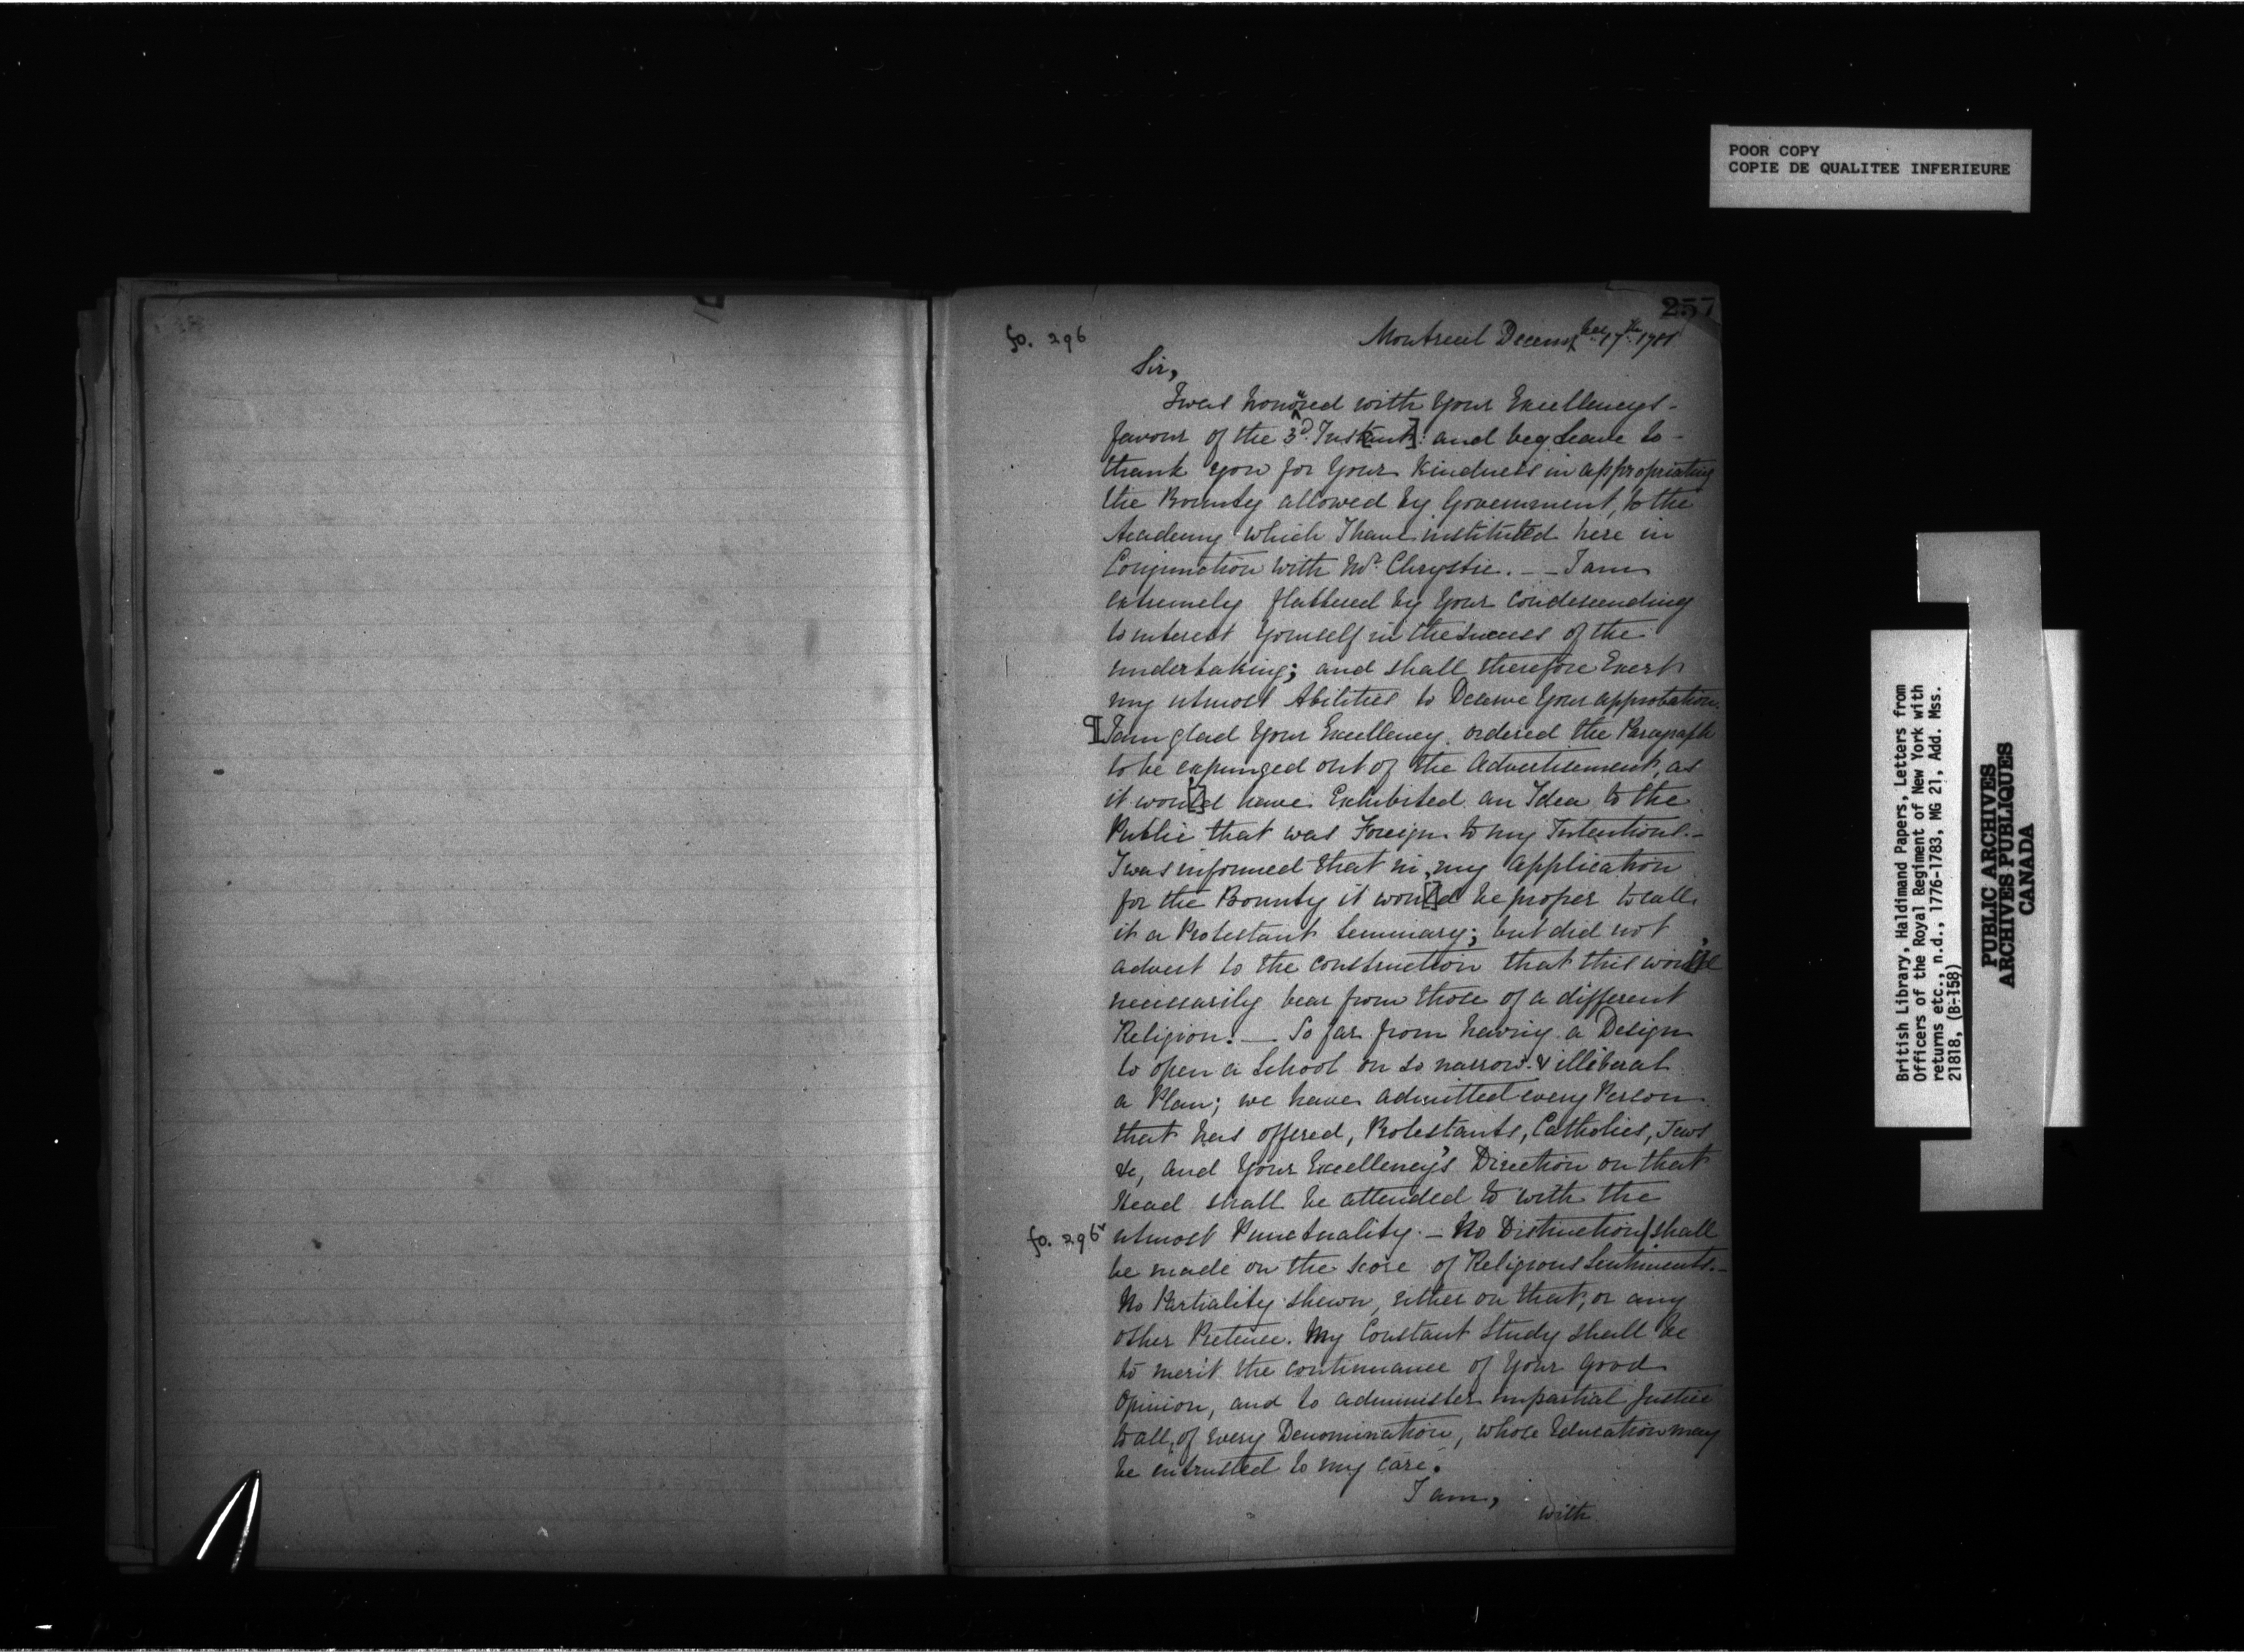 POOR COPY
COPIE DE QUALITEE INFERIEURE
257
fo. 296
Montreal December 17th 1781
Sir,
I was honoured with Your Excellencys-
favour of the 3d. Inst[ant]: and beg Leave to-
thank you for Your Kindness in appropriating
the Bounty allowed by Government, to the
Academy which I have instituted here in
Conjunction with Mr. Chrystie. -- I am
extremely flattered by Your condescending
to interest Yourself in the Success of the
undertaking; and shall therefore Exert
my utmost Abilities to Deserve Your approbation.
¶ I am glad Your Excellency ordered the Paragraph
to be expunged out of the Advertisement, as
it wou[l]d have Exhibited an Idea to the
Public that was Foreign to my Intentions.-
I was informed that in my Application
for the Bounty it wou[l]d be proper to call
it a Protestant Seminary; but did not
advert to the construction that this wou'd
necessarily bear from those of a different
Religion. — So far from having a Design
to open a School on so narrow & illiberal
a Plan; we have admitted every Person
that has offered, Protestants, Catholics, Jews
&c, and Your Excellency's Direction on that
Head shall be attended to with the
fo. 296v utmost Punctuality. - No Distinction/shall
be made on the score of Religious Sentiments.-
No Partiality shewn, either on that, or any
other Pretence. My Constant Study shall be
to merit the continuance of Your good
Opinion, and to administer impartial Justice
to all, of every Denomination, whose Education may
be intrusted to my care.
I am,
with
British Library, Haldimand Papers, Letters from
Officers of the Royal Regiment of New York with
returns etc., n.d., 1776-1783, MG 21, Add. Mss.
21818, (B-158)
PUBLIC ARCHIVES
ARCHIVES PUBLIQUES
CANADA